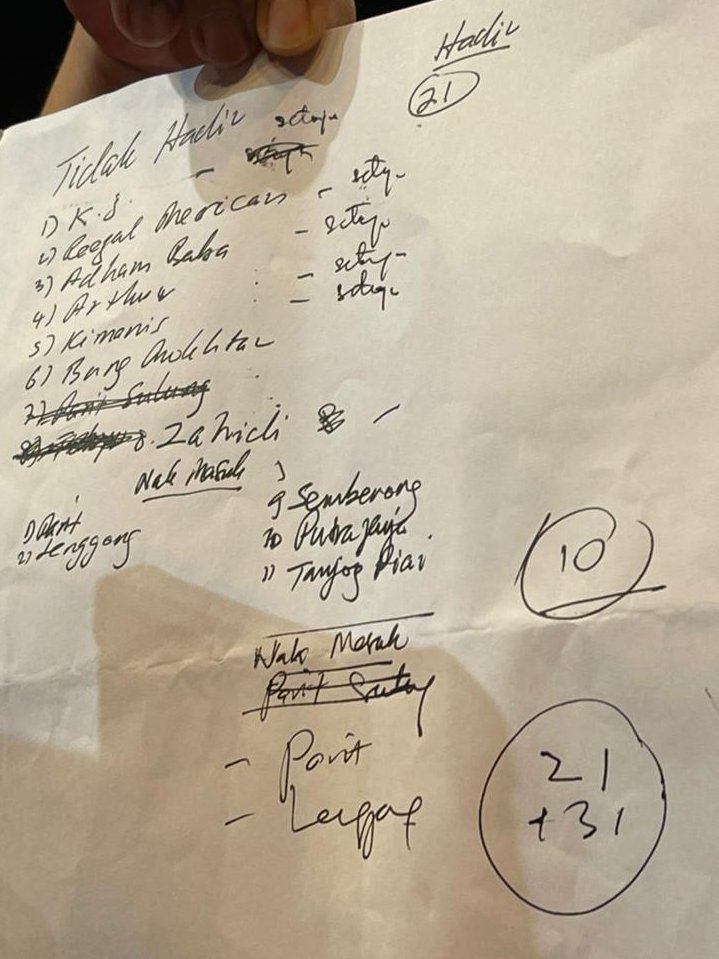 Hadir
21
Tidak Hadir
setuju
1) K.J. -
2) Reezal Merican - setuju
3) Adham Baba - setuju
4) Arthur : - setuju
5) Kimanis : - setuju
6) Bung Mokhtar
7) Parit Sulung
8. Zahidi -
Nak Masuk
1) Parit
2) Lenggong
9 Semberong
10 Putrajaya
11 Tanjog Piai
10
Nak Masuk
Parit Sulung
- Parit
- Lenggong
21
+31